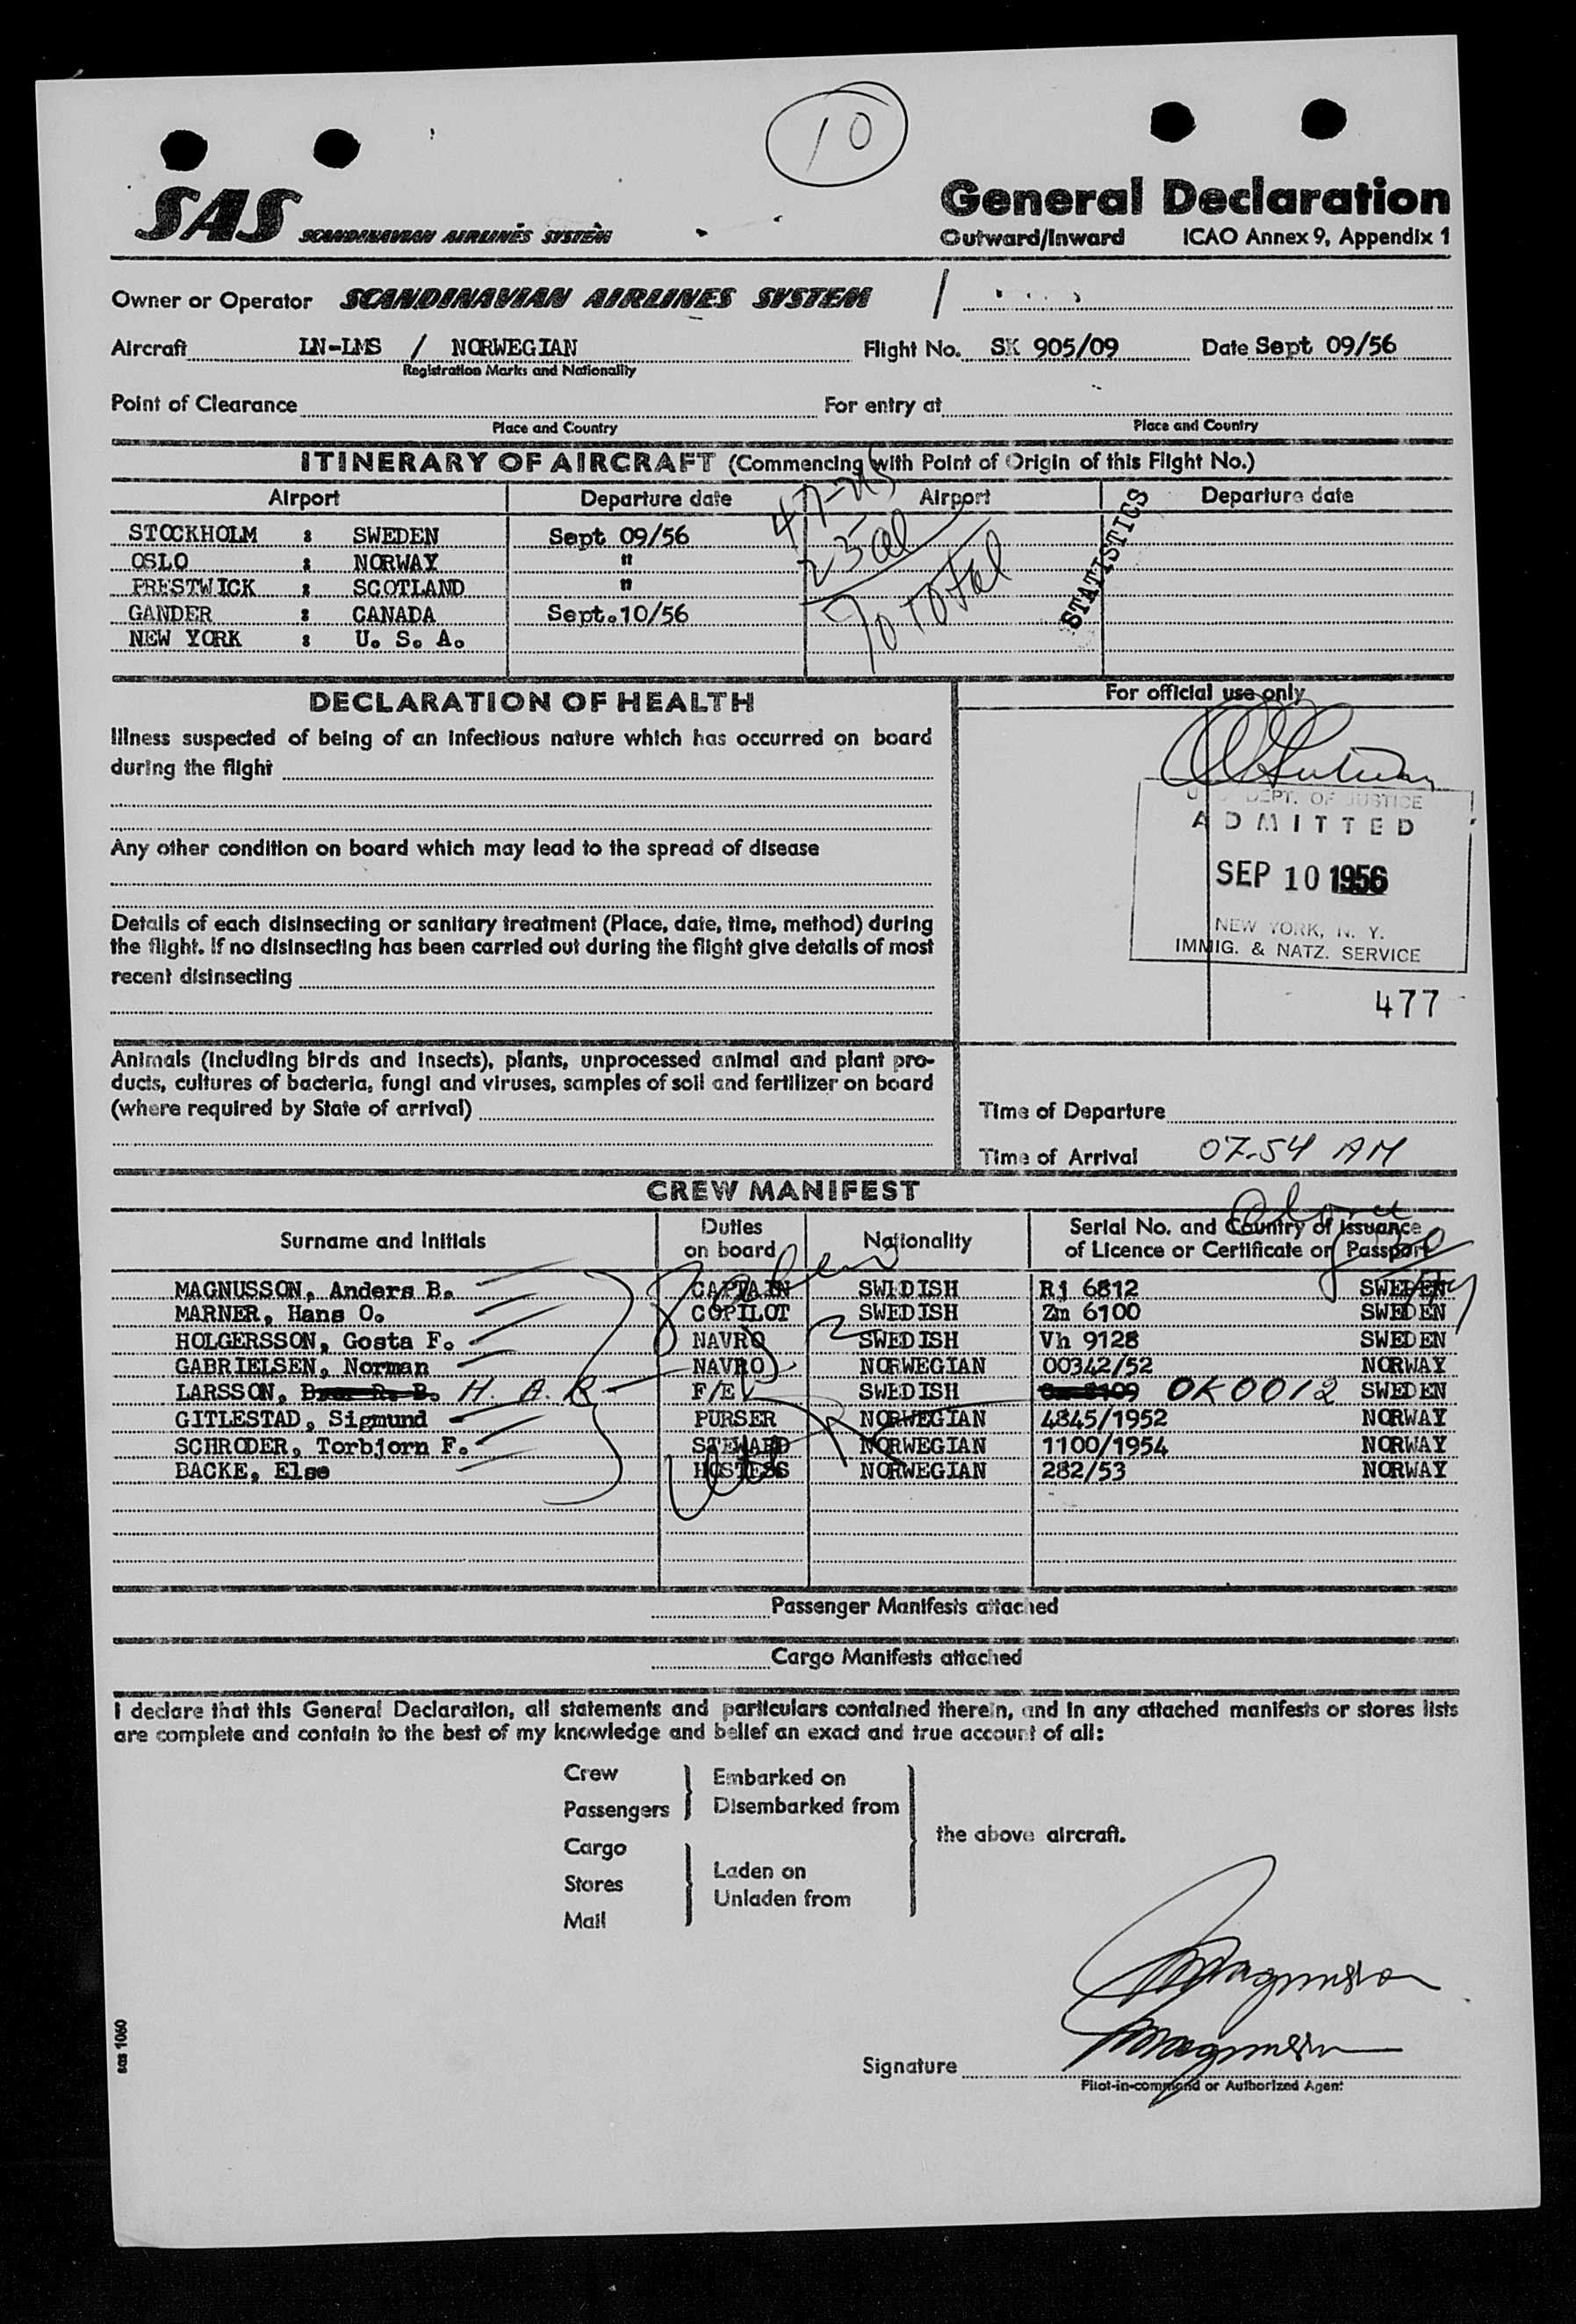 10
SAS SCANDINAVIAN AIRLINES SYSTEM
General Declaration
Outward/Inward ICAO Annex 9, Appendix 1
Owner or Operator SCANDINAVIAN AIRLINES SYSTEM /
Aircraft LN-LMS / NORWEGIAN Flight No. SK 905/09 Date Sept 09/56
Registration Marks and Nationality
Point of Clearance For entry at
Place and Country Place and Country
ITINERARY OF AIRCRAFT (Commencing with Point of Origin of this Flight No.)
Airport Departure date Airport Departure date
STOCKHOLM : SWEDEN Sept 09/56
OSLO : NORWAY "
PRESTWICK : SCOTLAND "
GANDER : CANADA Sept.10/56
NEW YORK : U. S. A.
70 total
STATISTICS
DECLARATION OF HEALTH
For official use only
Illness suspected of being of an infectious nature which has occurred on board
during the flight
Any other condition on board which may lead to the spread of disease
Details of each disinsecting or sanitary treatment (Place, date, time, method) during
the flight. If no disinsecting has been carried out during the flight give details of most
recent disinsecting
U. S. DEPT. OF JUSTICE
ADMITTED
SEP 10 1956
NEW YORK, N. Y.
IMMIG. & NATZ. SERVICE
477
Animals (including birds and insects), plants, unprocessed animal and plant pro-
ducts, cultures of bacteria, fungi and viruses, samples of soil and fertilizer on board
(where required by State of arrival)
Time of Departure
Time of Arrival 07.54 AM
CREW MANIFEST
Surname and Initials Duties on board Nationality Serial No. and Country of Issuance of Licence or Certificate or Passport
MAGNUSSON, Anders B. CAPTAIN SWEDISH Rj 6812 SWEDEN
MARNER, Hans O. COPILOT SWEDISH Zm 6100 SWEDEN
HOLGERSSON, Gosta F. NAVRO SWEDISH Vh 9128 SWEDEN
GABRIELSEN, Norman NAVRO NORWEGIAN 00342/52 NORWAY
LARSSON, H. A. R F/E SWEDISH OK0012 SWEDEN
GITLESTAD, Sigmund PURSER NORWEGIAN 4845/1952 NORWAY
SCHRODER, Torbjorn F. STEWARD NORWEGIAN 1100/1954 NORWAY
BACKE, Else HOSTESS NORWEGIAN 282/53 NORWAY
Passenger Manifests attached
Cargo Manifests attached
I declare that this General Declaration, all statements and particulars contained therein, and in any attached manifests or stores lists
are complete and contain to the best of my knowledge and belief an exact and true account of all:
Crew
Passengers
Embarked on
Disembarked from
Cargo
Stores
Mail
Laden on
Unladen from
the above aircraft.
Magnusson
Signature Magnusson
Pilot-in-command or Authorized Agent
sas 1060